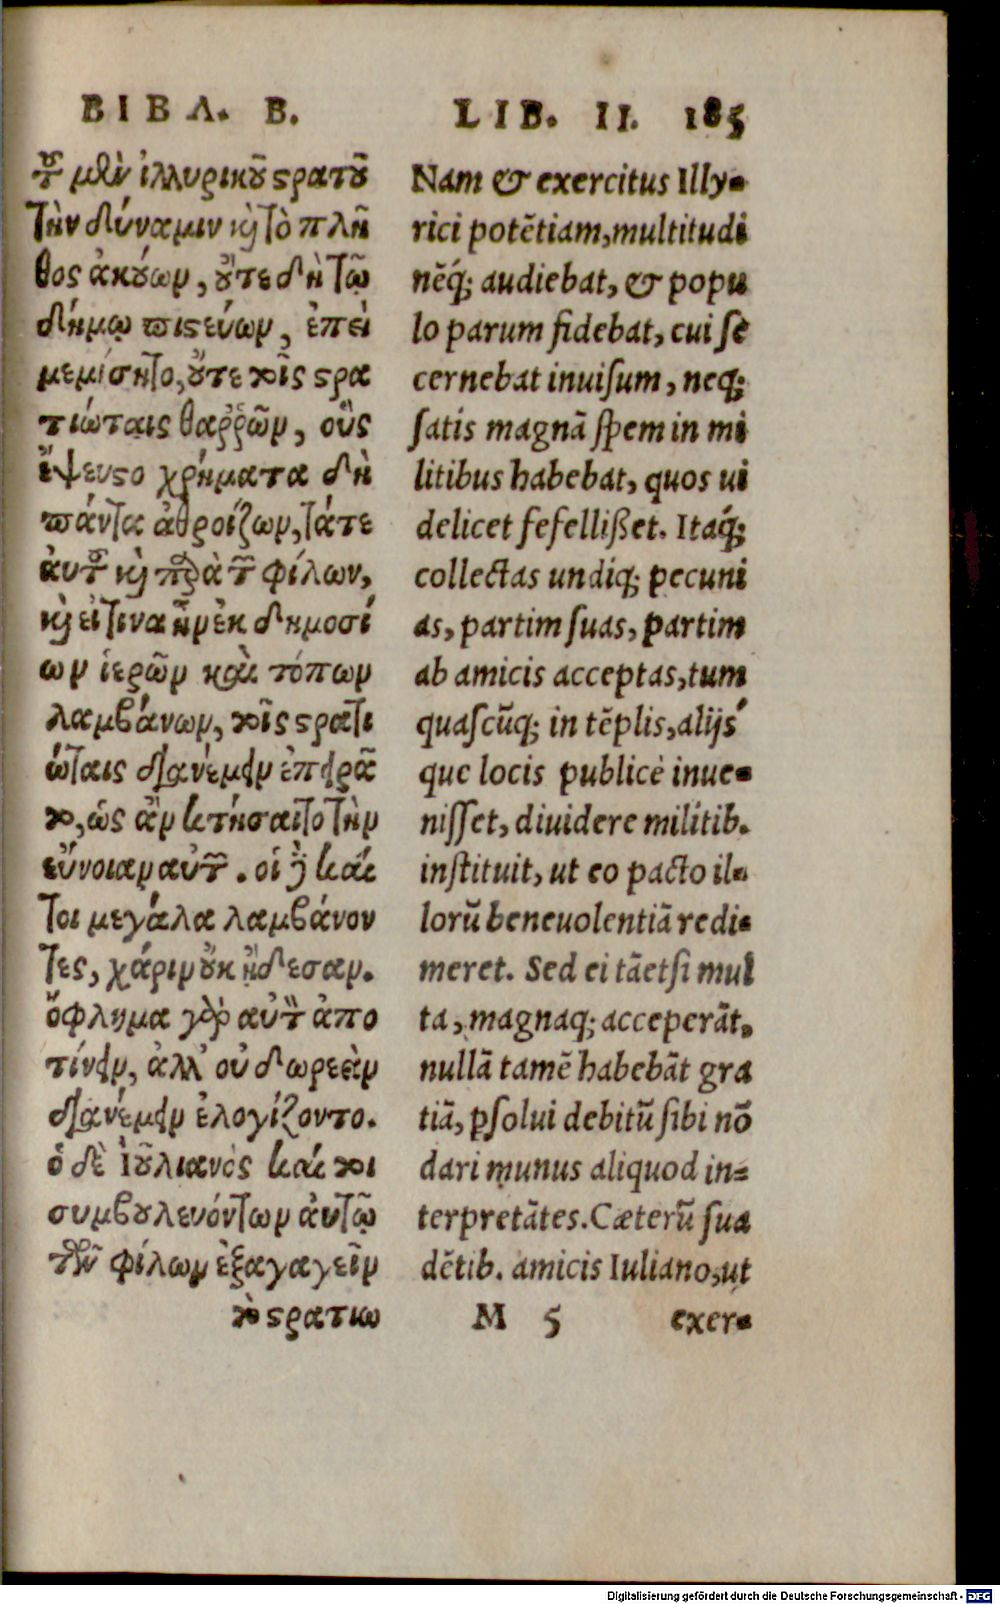 ΒΙΒΛ. Β.
τοῦ μὲν ἰλλυρικοῦ στρατοῦ
τὴν δύναμιν καὶ τὸ πλῆ
θος ἀκούων, οὔτε δὴ τῷ
δήμῳ πιστεύων, ἐπεὶ
μεμίσητο, οὔτε τοῖς στρα
τιώταις θαῤῥῶν, οὓς
ἔψευστο χρήματα δὴ
πάντα ἀθροίζων, τά τε
αὐτοῦ καὶ παρὰ τῶν φίλων,
καὶ εἴ τινα ἦν ἐκ δημοσί
ων ἱερῶν καὶ τόπων
λαμβάνων, τοῖς στρατι
ώταις διανέμειν ἐπειρᾶ
το, ὡς ἂν κτήσαιτο τὴν
εὔνοιαν αὐτῶν. οἱ δὲ καί
τοι μεγάλα λαμβάνον
τες, χάριν οὐκ ᾔδεσαν.
ὄφλημα γὰρ αὐτὸν ἀπο
τίνειν, ἀλλ' οὐ δωρεὰν
διανέμειν ἐλογίζοντο.
ὁ δὲ ἰουλιανὸς καί τοι
συμβουλευόντων αὐτῷ
τῶν φίλων ἐξαγαγεῖν
τὸ στρατιω
LIB. II. 185
Nam & exercitus Illy-
rici potētiam, multitudi
nēq́; audiebat, & popu
lo parum fidebat, cui ſe
cernebat inuiſum, neq;
ſatis magnā ſpem in mi
litibus habebat, quos ui
delicet fefellißet. Itaq́;
collectas undiq; pecuni
as, partim ſuas, partim
ab amicis acceptas, tum
quaſcūq; in tēplis, alijs
que locis publicè inue-
niſſet, diuidere militib.
inſtituit, ut eo pacto il-
lorū beneuolentiā redi-
meret. Sed ei tāetſi mul
ta, magnaq; acceperāt,
nullā tamē habebāt gra
tiā, pſolui debitū ſibi nō
dari munus aliquod in-
terpretātes. Cæterū ſua
dētib. amicis Iuliano, ut
M 5 exer-
Digitalisierung gefördert durch die Deutsche Forschungsgemeinschaft - DFG